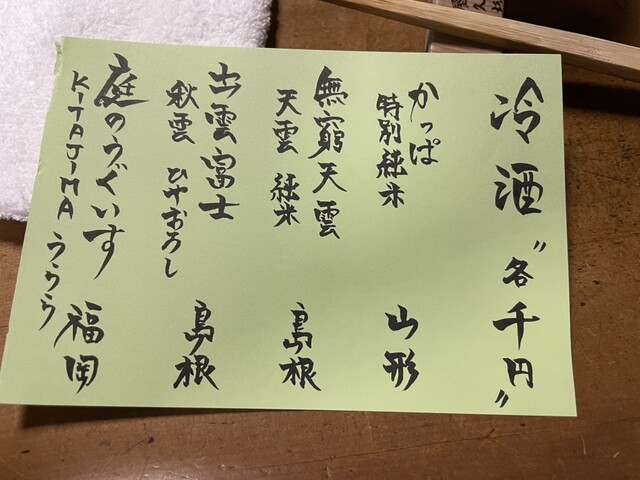 冷酒 〝各千円〟
かっぱ
特別純米 山形
無窮天雲
天雲 純米 島根
出雲富士
秋雲 ひやおろし 島根
庭のうぐいす
KITAJIMA うらら 福岡